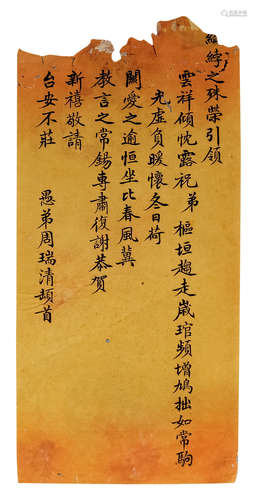 綍之殊榮引領
雲祥傾忱露祝 弟樞垣趨走歲琯頻增鳩拙如常駒
光虛負暖懷冬日荷
關愛之逾恒坐比春風冀
教言之常錫專肅復謝恭賀
新禧敬請
台安不莊
愚弟周瑞清頓首